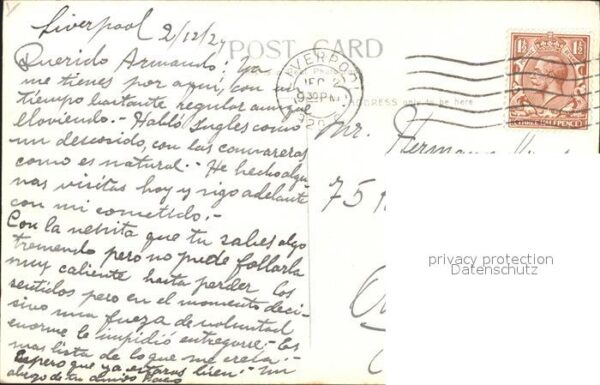 Liverpool 2/12/29
POST CARD
LIVERPOOL
DEC
930PM
1929
1½ 1½
Querido Armando: Ya
me tienes por aquí, con un
tiempo bastante regular aunque
lloviendo.- Hablo Ingles como
un descosido, con las camareras
como es natural.- He hecho algu-
nas visitas hoy y sigo adelante
con mi cometido.-
Con la nenita que tu sabes algo
tremendo pero no pude follarla
muy caliente hasta perder los
sentidos pero en el momento deci-
sivo una fuerza de voluntad
enorme le impidió entregarse.- Es
mas lista de lo que me creia.-
Espero que ya estaras bien.- Un
abrazo de tu amigo Paco
ADDRESS only to be here
Mr. Hermann
75
privacy protection
Datenschutz